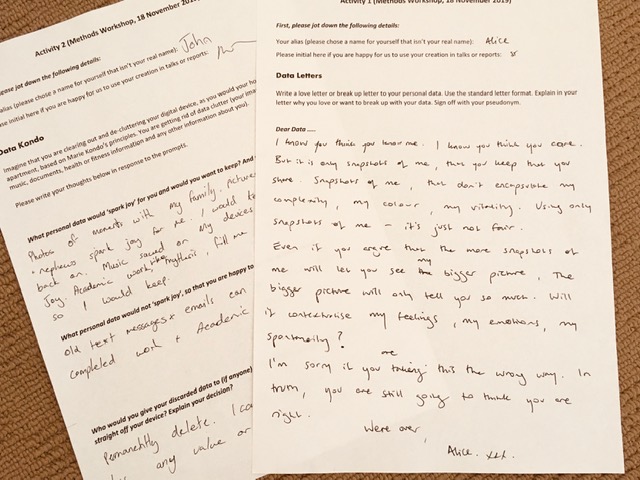 Activity 2 (Methods Workshop, 18 November 2019)
please jot down the following details:
alias (please chose a name for yourself that isn't your real name): John
Please initial here if you are happy for us to use your creation in talks or reports:
Data Kondo
Imagine that you are clearing out and de-cluttering your digital device, as you would your ho
apartment, based on Marie Kondo's principles. You are getting rid of data clutter (your imag
music, documents, health or fitness information and any other information about you).
Please write your thoughts below in response to the prompts.
What personal data would 'spark joy' for you and would you want to keep? And
Photos of moments with my family. pictures
nephews spark joy for me. I would
back on. Music saved on my devices
Joy. Academic work, the mythesis, fill me
so I would keep.
What personal data would not 'spark joy', so that you are happy to
old text messages + emails can
completed work + Academic
Who would you give your discarded data to (if anyone)
straight off your device? Explain your decision?
Permanently delete. I
any value or
Activity 1 (Methods Workshop, 18 November 2019)
First, please jot down the following details:
Your alias (please chose a name for yourself that isn't your real name): Alice
Please initial here if you are happy for us to use your creation in talks or reports:
Data Letters
Write a love letter or break up letter to your personal data. Use the standard letter format. Explain in your
letter why you love or want to break up with your data. Sign off with your pseudonym.
Dear Data .....
I know you think you know me. I know you think you care.
But it is only snapshots of me, that you keep that you
share. Snapshots of me, that don't encapsulate my
complexity, my colour, my vitality. Using only
snapshots of me - it's just not fair.
Even if you argue that the more snapshots of
me will let you see my bigger picture, The
bigger picture will only tell you so much. Will
it contextualise my feelings, my emotions, my
spontaneity?
I'm sorry if you are taking this the wrong way. In
truth, you are still going to think you are
right.
We're over,
Alice. xxx.